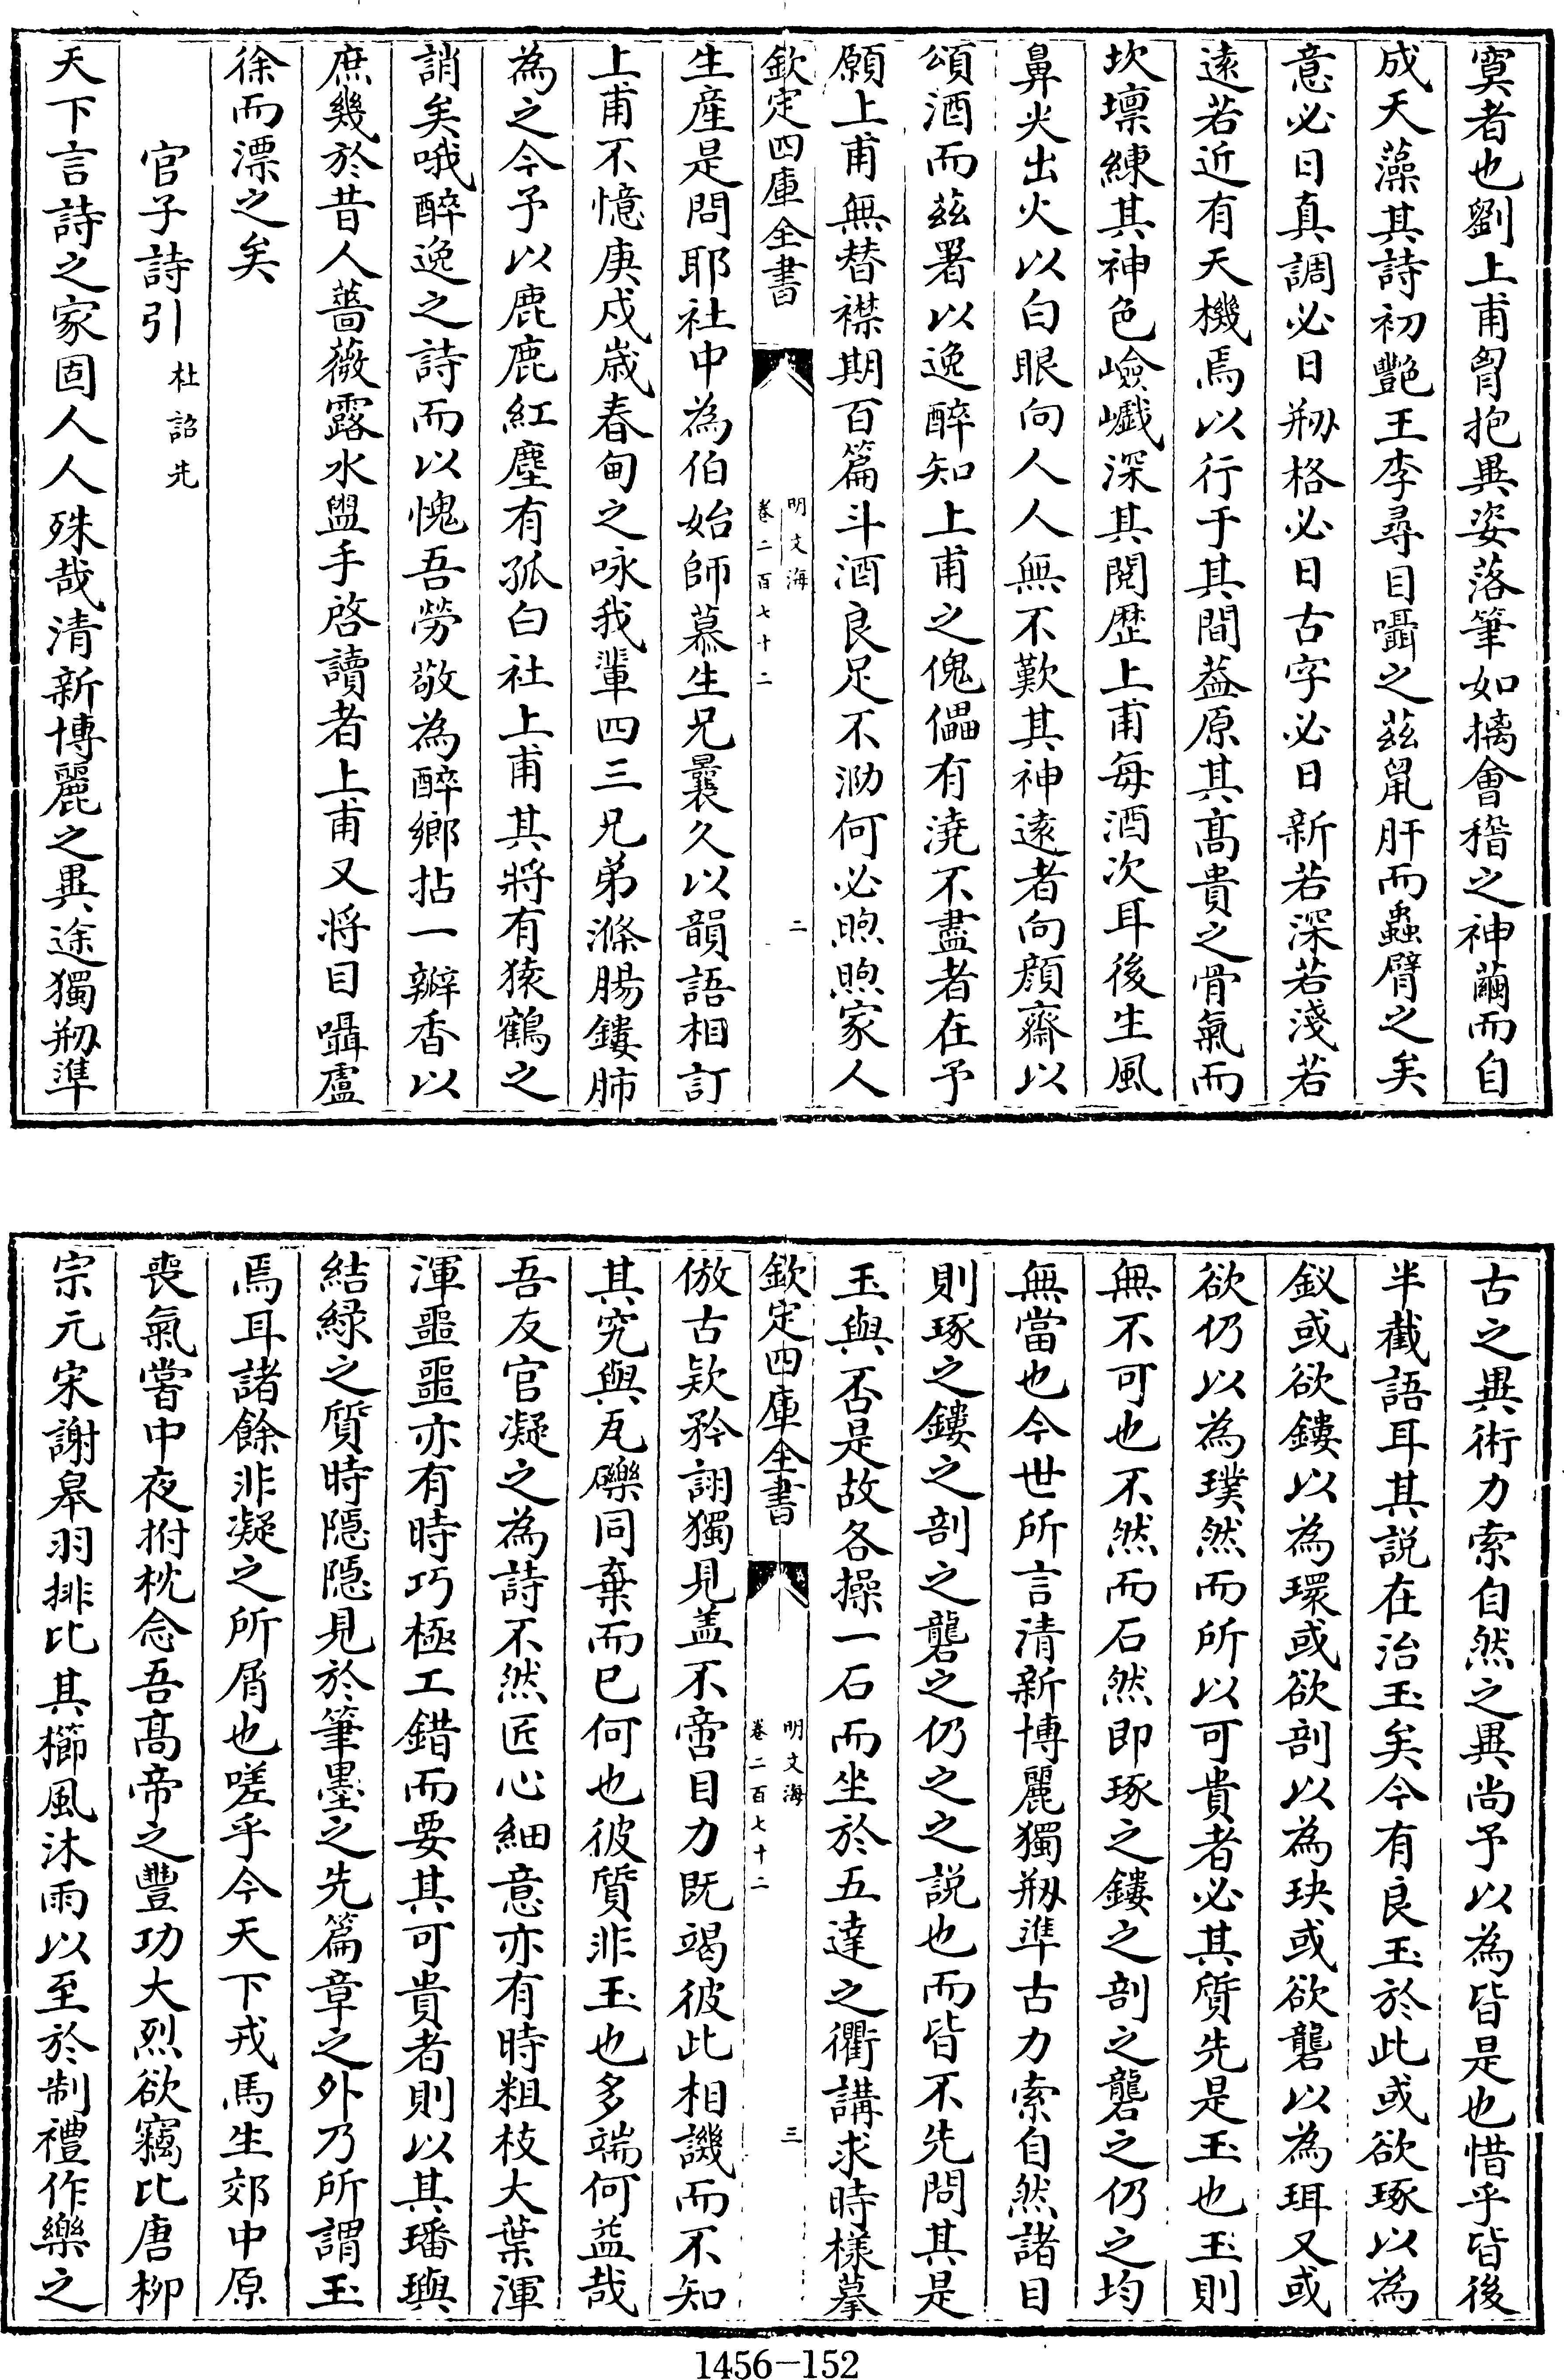 寞者也劉上甫胷抱異姿落筆如摛會稽之神繭而自
成天藻其詩初艷王李尋目囁之茲䑕肝而蟲臂之矣
意必曰真調必曰剏格必曰古字必曰新若深若淺若
遠若近有天機焉以行于其間葢原其髙貴之骨氣而
坎壈練其神色嶮巇深其閱歷上甫每酒次耳後生風
鼻尖出火以白眼向人人無不歎其神遠者向顔齋以
頌酒而茲署以逸醉知上甫之傀儡有澆不盡者在予
願上甫無替襟期百篇斗酒良足不泐何必煦煦家人
欽定四庫全書
明文海
卷二百七十二
二
生產是問耶社中為伯始師慕生兄曩久以韻語相訂
上甫不憶庚戍歲春甸之咏我輩四三兄弟滌腸鏤肺
為之今予以鹿鹿紅塵有孤白社上甫其將有猿鶴之
誚矣哦醉逸之詩而以愧吾勞敬為醉鄉拈一瓣香以
庶幾於昔人薔薇露水盥手啓讀者上甫又將目囁盧
徐而漂之矣
官子詩引
杜詔先
天下言詩之家固人人殊哉清新博麗之異途獨剏準
古之異術力索自然之異尚予以為皆是也惜乎皆後
半截語耳其説在治玉矣今有良玉於此或欲琢以為
釵或欲鏤以為環或欲剖以為玦或欲礱以為珥又或
欲仍以為璞然而所以可貴者必其質先是玉也玉則
無不可也不然而石然即琢之鏤之剖之礱之仍之均
無當也今世所言清新博麗獨剏準古力索自然諸目
則琢之鏤之剖之礱之仍之之説也而皆不先問其是
玉與否是故各操一石而坐於五達之衢講求時樣摹
欽定四庫全書
明文海
卷二百七十二
三
倣古欵矜詡獨見盖不啻目力既竭彼此相譏而不知
其究與瓦礫同棄而已何也彼質非玉也多端何益哉
吾友官凝之為詩不然匠心細意亦有時粗枝大葉渾
渾噩噩亦有時巧極工錯而要其可貴者則以其璠璵
結綠之質時隱隱見於筆墨之先篇章之外乃所謂玉
焉耳諸餘非凝之所屑也嗟乎今天下戎馬生郊中原
喪氣嘗中夜拊枕念吾髙帝之豐功大烈欲竊比唐柳
宗元宋謝皋羽排比其櫛風沐雨以至於制禮作樂之
1456-152